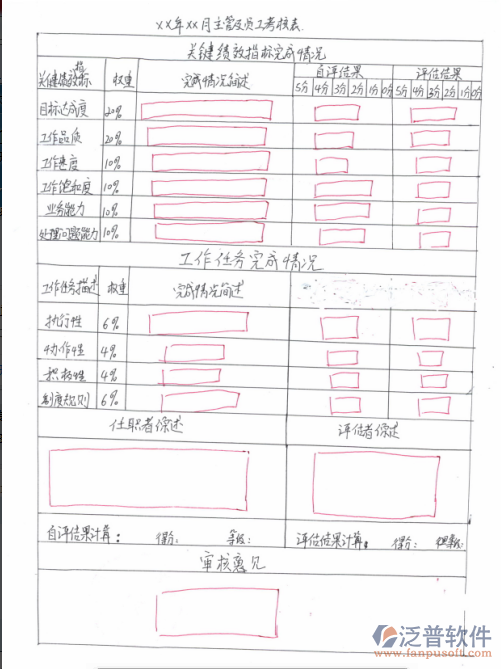 XX年XX月主管及员工考核表.
关键绩效指标完成情况
关键绩效指标 权重 完成情况简述 自评结果 评估结果
5分 4分 3分 2分 1分 0分 5分 4分 3分 2分 1分 0分
目标达成度 20%
工作品质 20%
工作速度 10%
工作饱和度 10%
业务能力 10%
处理问题能力 10%
工作任务完成情况
工作任务描述 权重 完成情况简述
执行性 6%
协作性 4%
积极性 4%
制度规则 6%
任职者综述 评估者综述
自评结果计算: 得分: 等级: 评估结果计算: 得分: 等级:
审核意见
泛普软件
www.fanpusoft.com